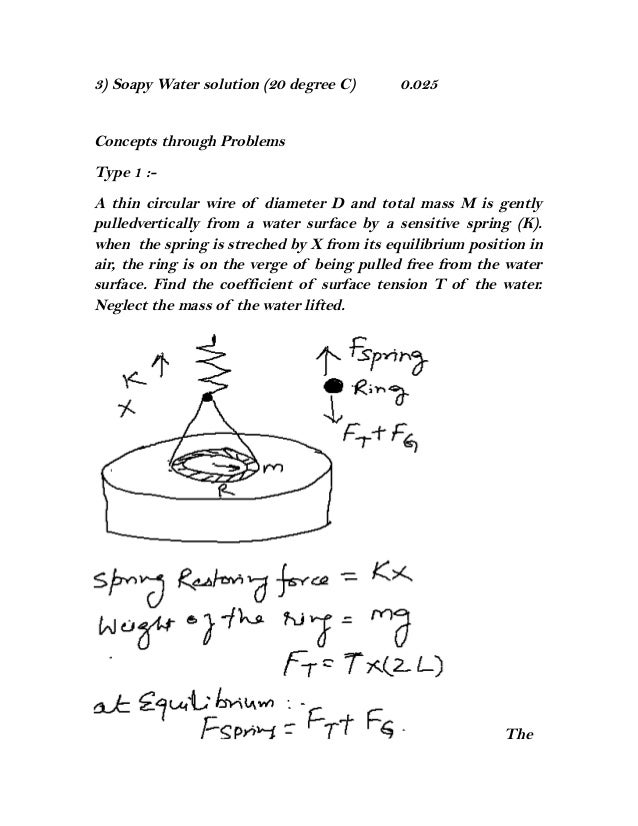 3) Soapy Water solution (20 degree C) 0.025
Concepts through Problems
Type 1 :-
A thin circular wire of diameter D and total mass M is gently
pulledvertically from a water surface by a sensitive spring (K).
when the spring is streched by X from its equilibrium position in
air, the ring is on the verge of being pulled free from the water
surface. Find the coefficient of surface tension T of the water.
Neglect the mass of the water lifted.
K
X
Fspring
Ring
FT + FG
m
R
Spring Restoring force = Kx
Weight of the ring = mg
FT = T x(2L)
at Equilibrium :-
Fspring = FT + FG.
The